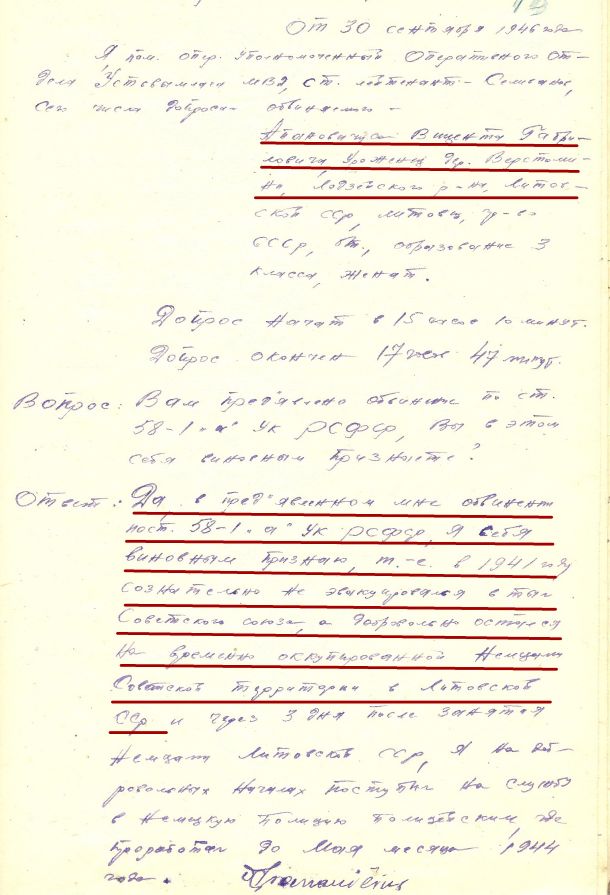 От 30 сентября 1946 года
Я, пом. опер. уполномоченный Оперативного От-
дела Устьвымлага МВД, ст. лейтенант
сего числа допросил обвиняемого -
Апановичуса Винцента Габри-
ловича, уроженец дер. Верстоми-
ны, Лодзейского р-на, Литов-
ской ССР, литовец, гр-во
СССР, б/п, образование 3
класса, женат.
Допрос начат в 15 часов 10 минут.
Допрос окончен 17 час 47 минут.
Вопрос: Вам пред'явлено обвинение по ст.
58-1 "а" УК РСФСР, Вы в этом
себя виновным признаете?
Ответ: Да, в пред'явленном мне обвинении
по ст. 58-1 "а" УК РСФСР, я себя
виновным признаю, т.-е. в 1941 году
сознательно не эвакуировался в тыл
Советского союза, а добровольно остался
на временно оккупированной немцами
Советской территории в Литовской
ССР и через 3 дня после занятия
немцами Литовской ССР, я на доб-
ровольных началах поступил на службу
в немецкую полицию полицейским где
проработал до Мая месяца 1944
года.